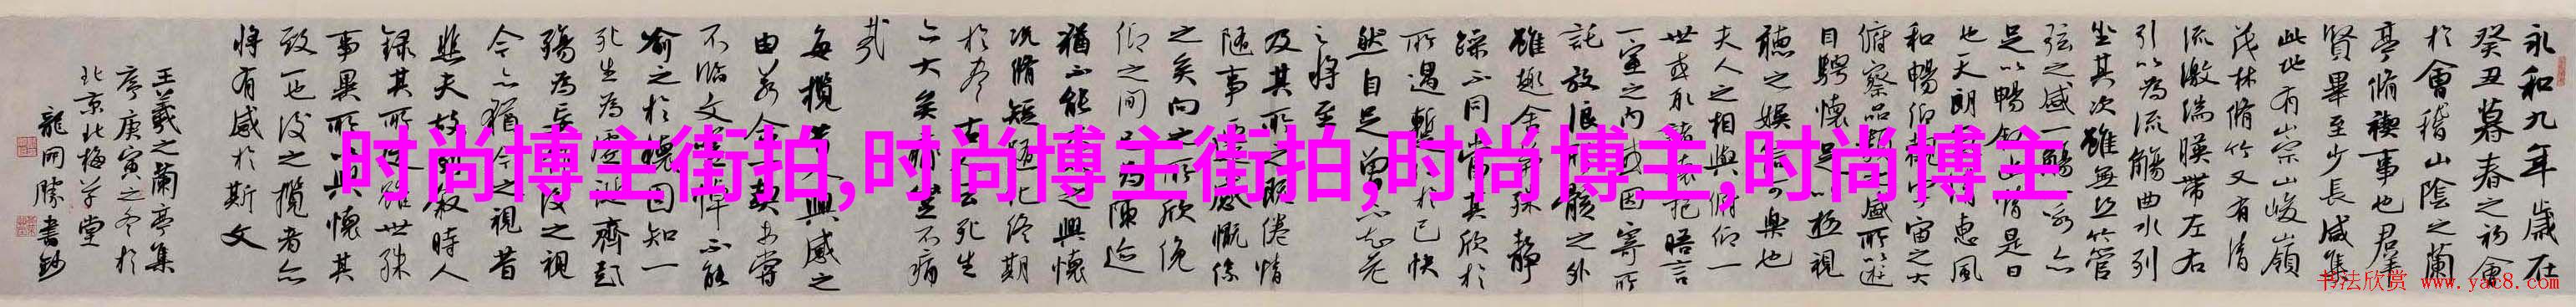 永和九年歲在
癸丑暮春之初會
於會稽山陰之蘭
亭脩稧事也群
賢畢至少長咸集
此地有崇山峻嶺
茂林脩竹又有清
流激湍暎帶左右
引以為流觴曲水列
坐其次雖無絲竹管
弦之盛一觴一詠亦
是日
也天朗 惠風
和暢仰 宇宙之大
俯察品類 盛所以遊
目騁懷足以極視
聽之娛信可樂也
夫人之相與俯仰一
世或取諸懷抱晤言
一室之內或因寄所
託放浪形骸之外
雖趣舍 殊靜
躁不同當其欣於
所遇暫 於己快
然自足 老
之將至
及其所之既倦情
隨事遷感慨係
之矣向之所欣俛
仰之間 為陳迹
猶不能 之興懷
況脩短隨化終期
於 古 死生
亦大矣 不痛
哉
每攬昔人興感之
由若合一契未嘗
不臨文 悼不能
喻之於懷固知一
死生為虛誕齊彭
殤為妄 後之視
今亦猶今之視昔
悲夫故列敘時人
錄其所 雖世殊
事異所以興懷其
致一也後之攬者亦
將有感於斯文
王羲之蘭亭集
序庚寅之冬於
北京北梅草堂
龍開勝書鈔
时尚博主街拍,时尚博主街拍,时尚博主,时尚博主
书法欣赏 www.yac8.com